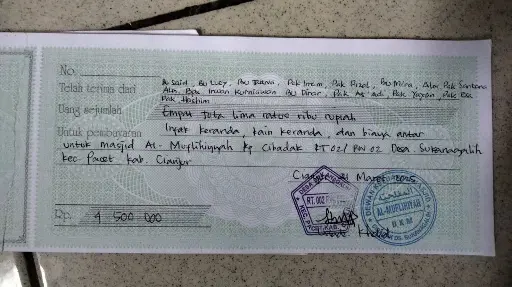 No.
Telah terima dari
P. Said, Bu Lucy, Ibu Ivana, Pak Imam, Pak Rizal, Bu Mira, Alm Pak Santono
Alm. Bpk Irwan Kurniawan Bu Dinar, Pak Adi, Pak Yayan, Pak
Pak Hashim
Uang sejumlah
Empat juta lima ratus ribu rupiah
Untuk pembayaran
Infak keranda, kain keranda, dan biaya antar
untuk masjid Al-Muflihiyyah Kp Cibadak RT 02/RW 02 Desa Sukanagalih
Kec. Pacet Kab. Cianjur
Cianjur, 21 Maret
Rp.
4 500 000
RT. 002
AL-MUFLIHIYYAH
DKM